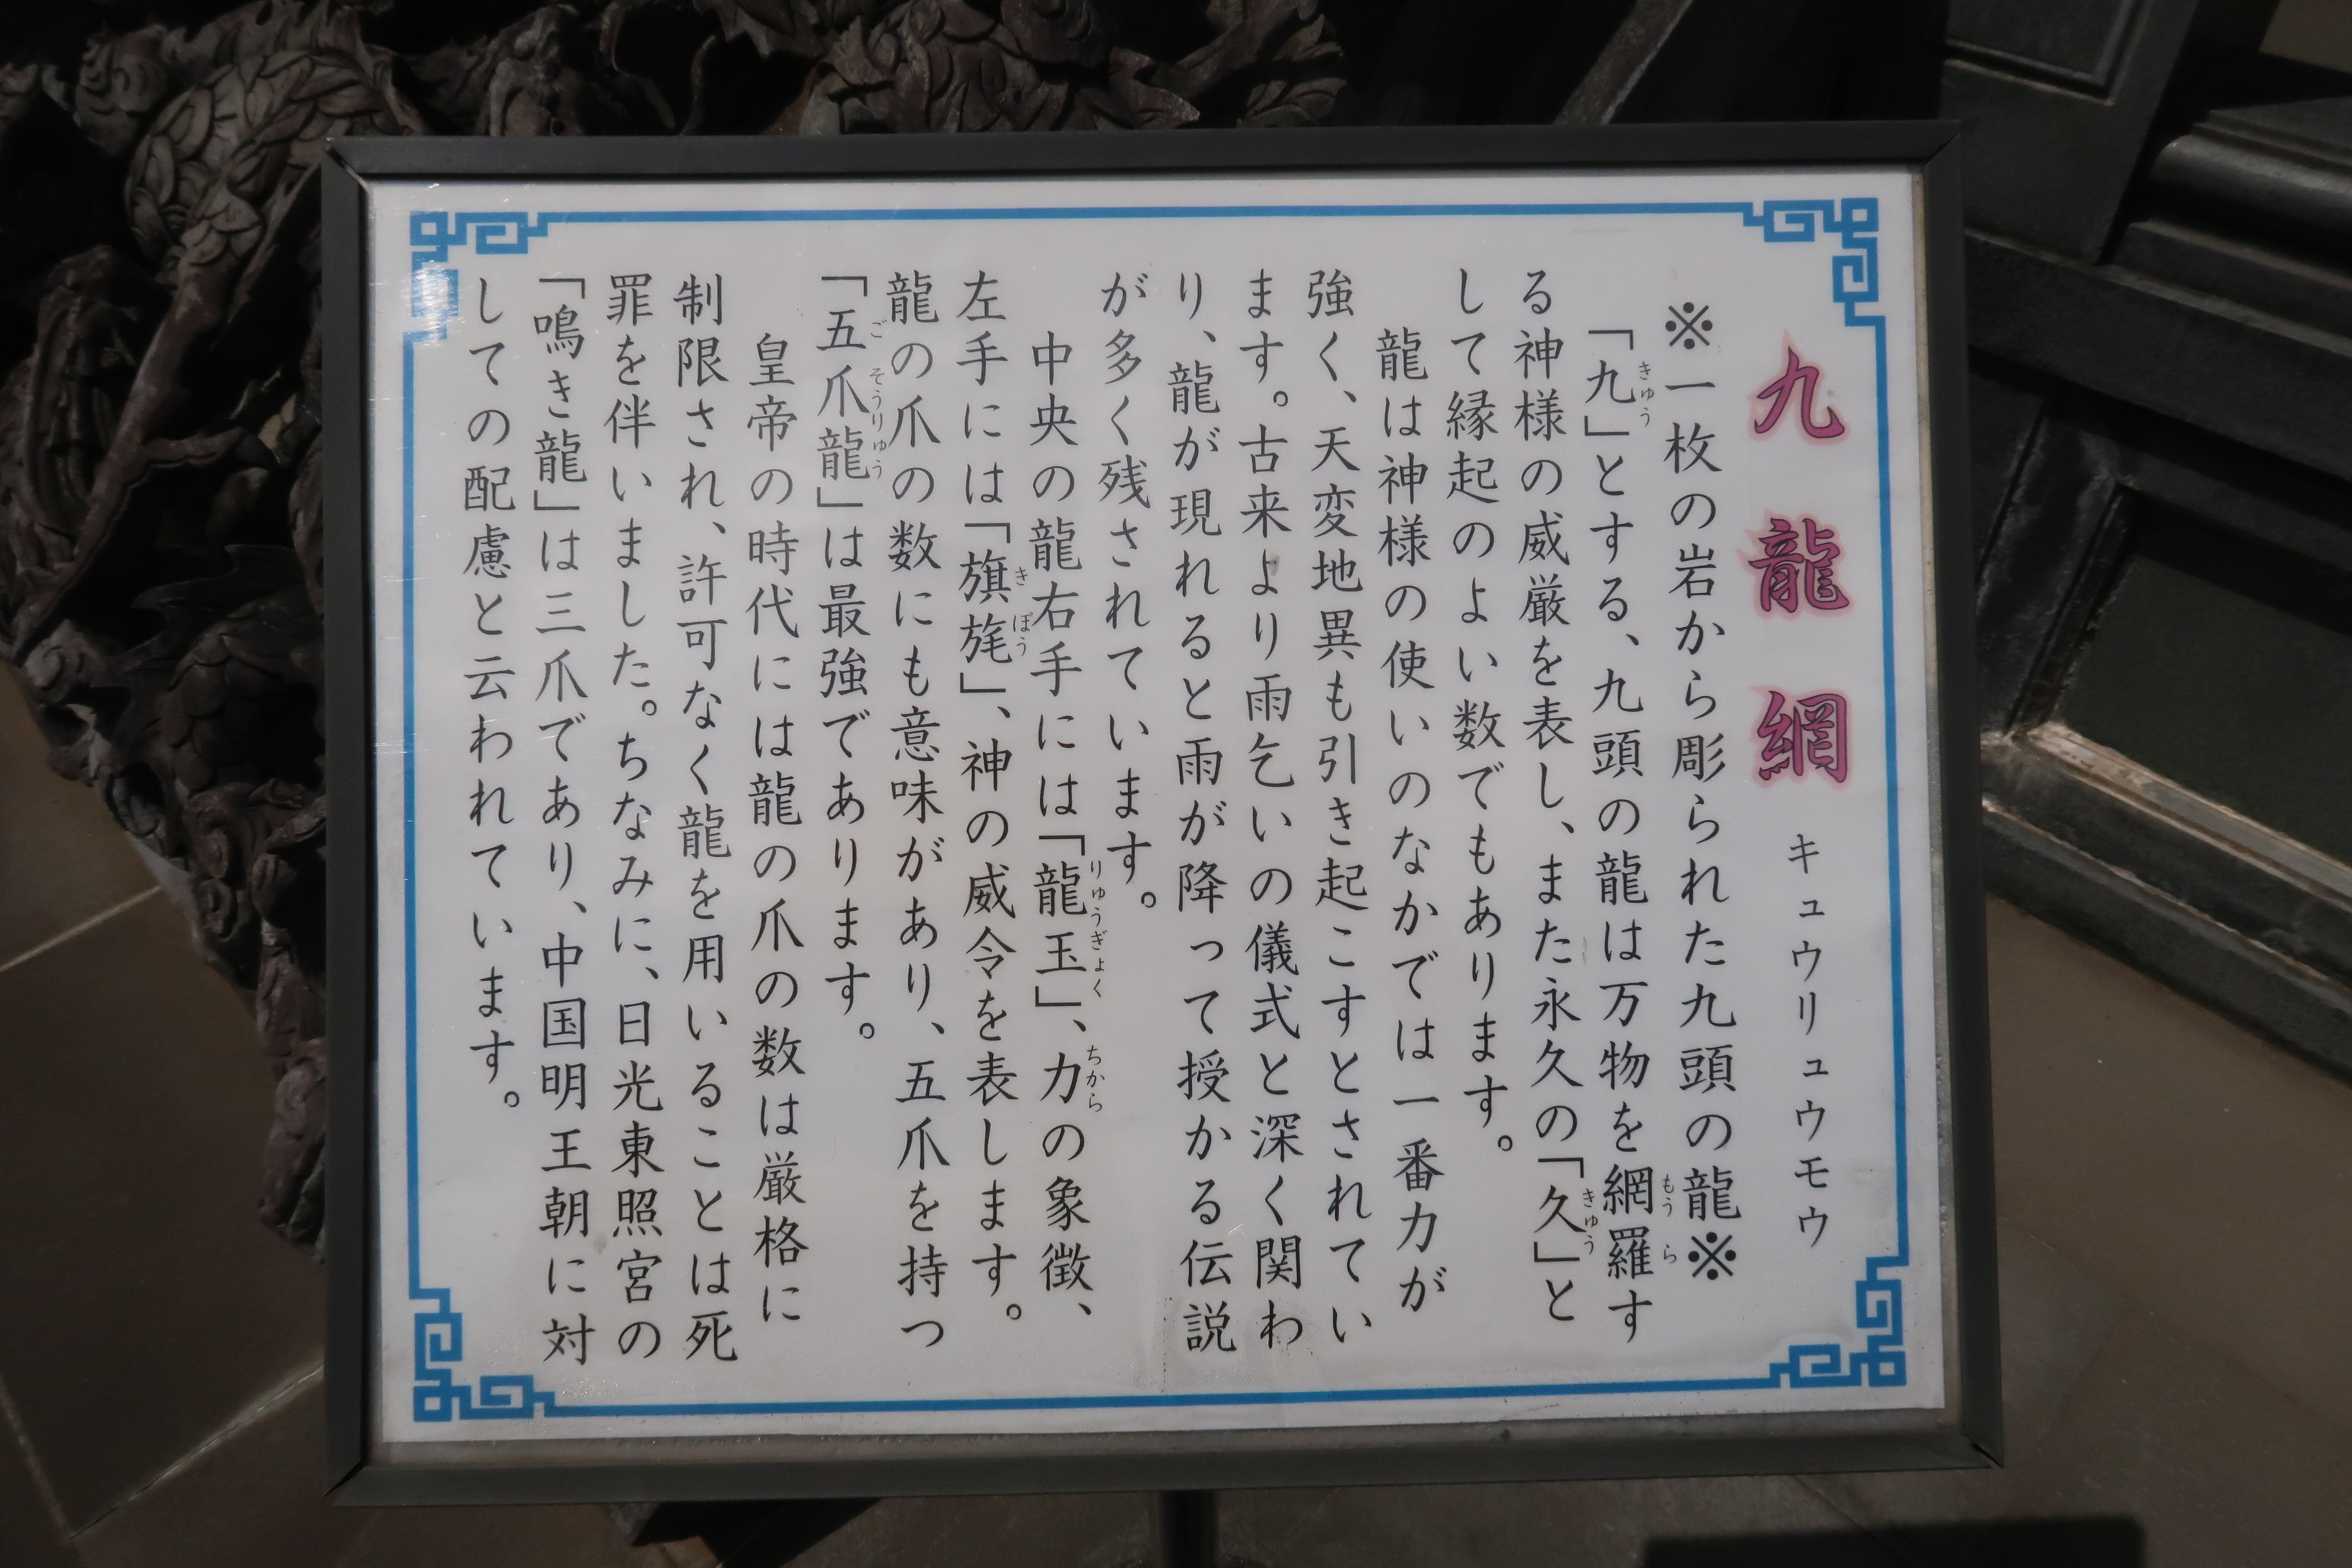 九龍網 キュウリュウモウ
※一枚の岩から彫られた九頭の龍※
「九」とする、九頭の龍は万物を網羅す
る神様の威厳を表し、また永久の「久」と
して縁起のよい数でもあります。
龍は神様の使いのなかでは一番力が
強く、天変地異も引き起こすとされてい
ます。古来より雨乞いの儀式と深く関わ
り、龍が現れると雨が降って授かる伝説
が多く残されています。
中央の龍右手には「龍玉」、力の象徴、
左手には「旗旄」、神の威令を表します。
龍の爪の数にも意味があり、五爪を持つ
「五爪龍」は最強であります。
皇帝の時代には龍の爪の数は厳格に
制限され、許可なく龍を用いることは死
罪を伴いました。ちなみに、日光東照宮の
「鳴き龍」は三爪であり、中国明王朝に対
しての配慮と云われています。